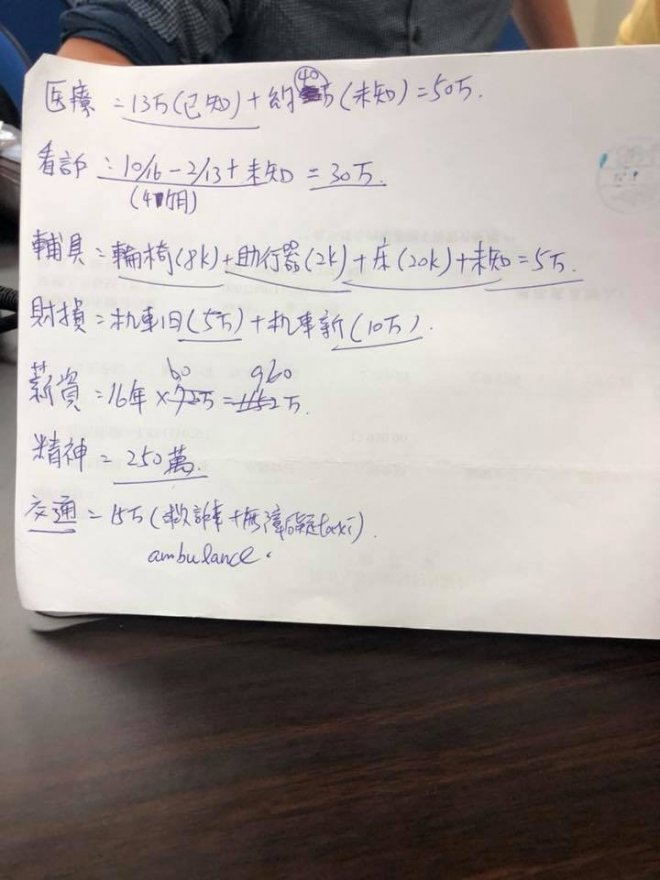 医療 = 13万(已知) + 約40万(未知) = 50万.
看診 = 10/16 - 2/13 + 未知 = 30万.
(4個月)
輔具 = 輪椅(8k) + 助行器(2k) + 床(20k) + 未知 = 5万.
財損 = 机車旧(5万) + 机車新(10万).
60 960
薪資 = 16年 × 72万 = 1152万.
精神 = 250萬.
交通 = 15万(救診車+無障礙taxi).
ambulance.